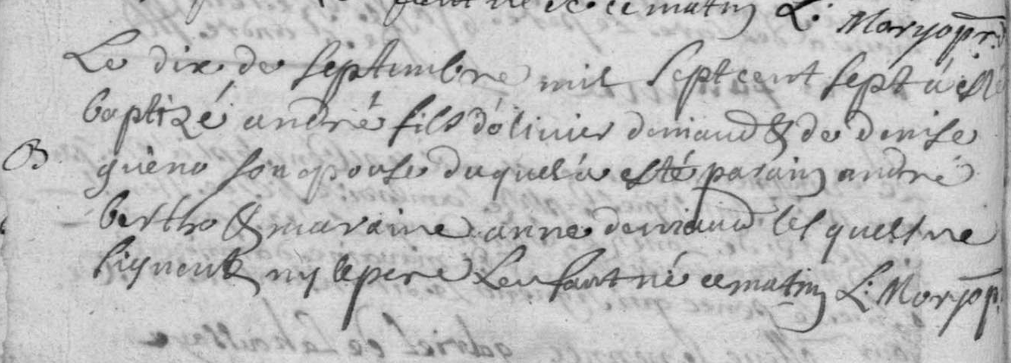 né ce matin L: Moryo pr.
Le dix de septembre mil sept cent sept à esté
baptizé andré fils dólivier deniaud & de denise
B guéno son epouse duquel à esté parain andré
bertho & maraine anne deniaud lesquels ne
signent ny le pere Lenfant né ce matin L: Moryo p.
gabriel de